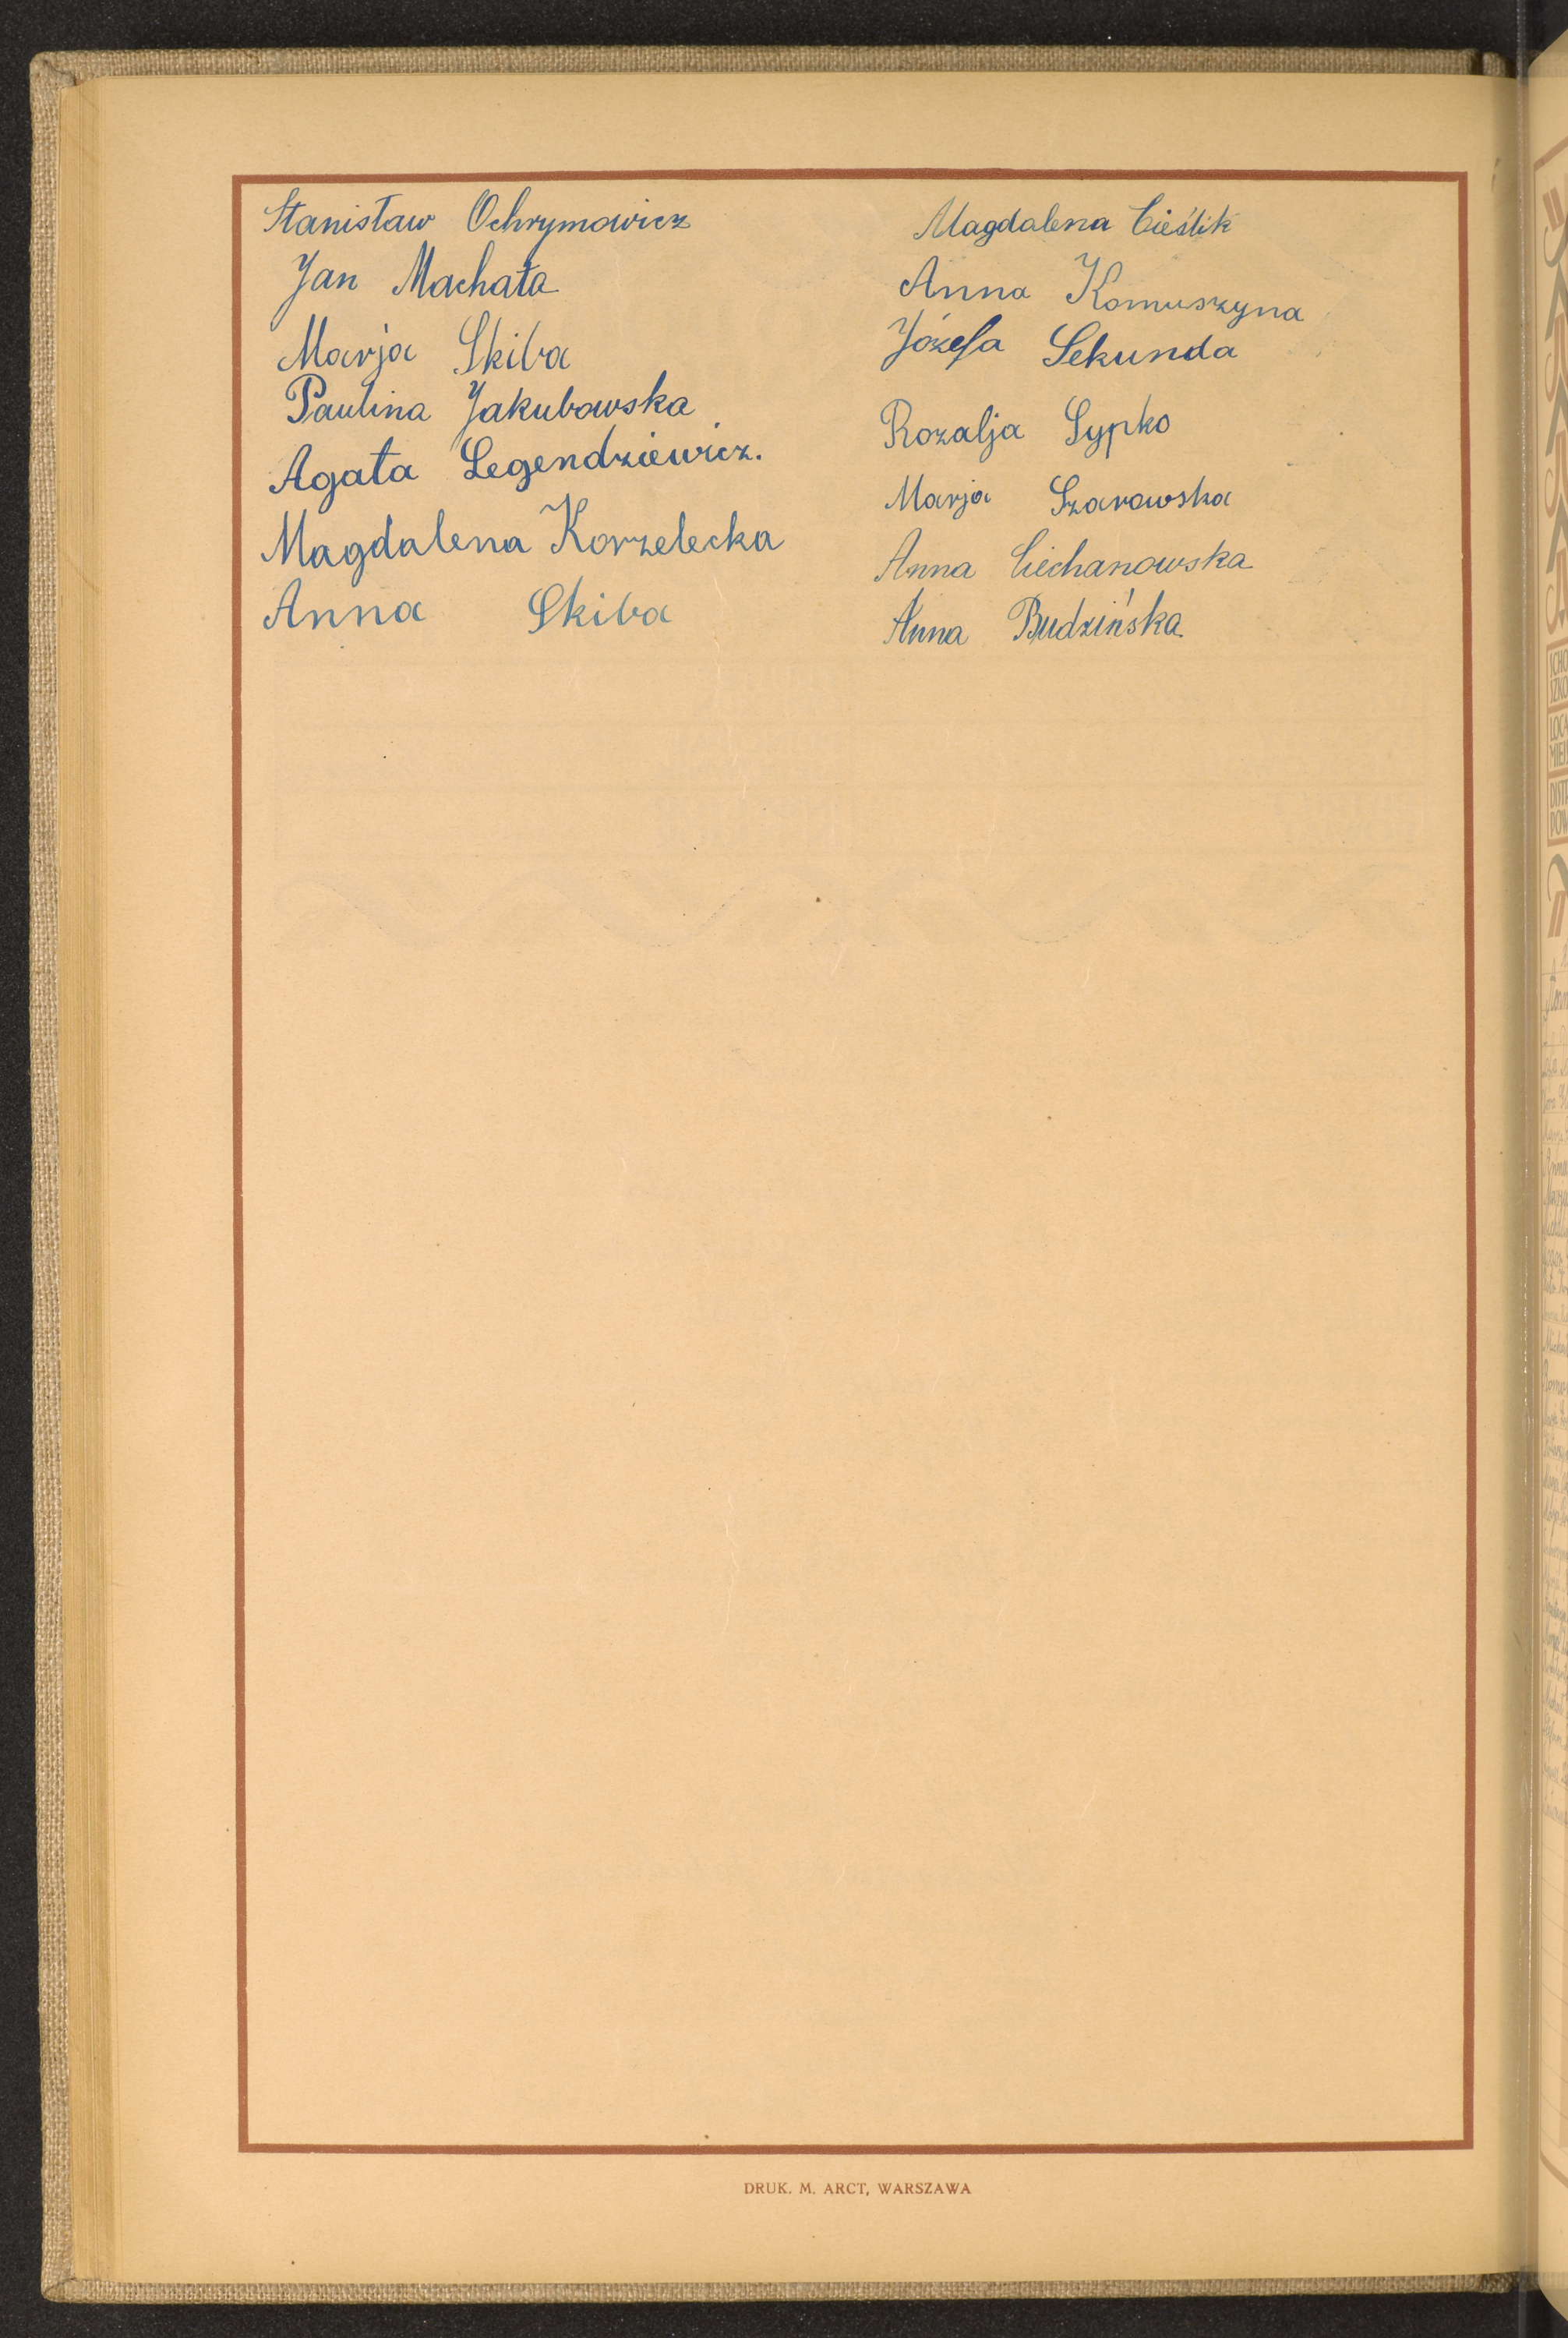 Stanisław Ochrymowicz
Jan Machała
Marja Skiba
Paulina Jakubowska
Agata Legendziewicz.
Magdalena Korzelecka
Anna Skiba
Magdalena Cieślik
Anna Komuszyna
Józefa Sekunda
Rozalja Sypko
Marja Szarowska
Anna Ciechanowska
Anna Budzińska
DRUK. M. ARCT, WARSZAWA